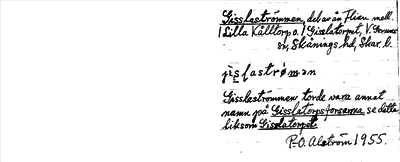 Gisslaströmmen, del av ån Flian mell.
Lilla Källtorp o. Gisslatorpet, V. Gerums
sn, Skånings hd, Skar. l.
jìs̱laströ̀mən
Gisslaströmmen torde vara annat
namn på Gisslatorpsforsarna, se detta
liksom Gisslatorpet.
P.-O. Alström 1955.